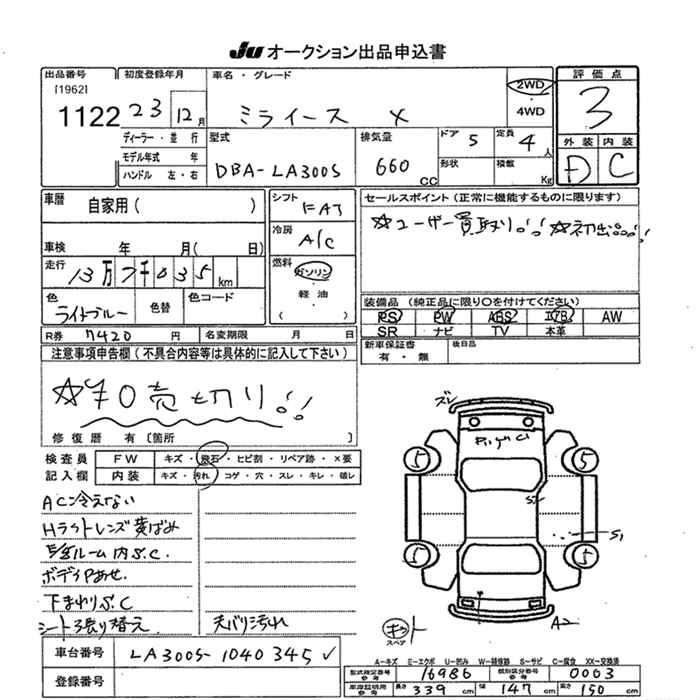 JU オークション出品申込書
出品番号
[1962]
1122
初度登録年月
23 12月
車名・グレード
ミライース X
2WD
・
4WD
評価点
3
外装 内装
D C
ディーラー・並行
モデル年式 年
ハンドル 左・右
型式
DBA-LA300S
排気量
660 CC
ドア 5
形状
定員 4 人
積載 Kg
車歴 自家用( )
車検 年 月( 日)
走行 13万7千035km
色 ライトブルー 色替 色コード
シフト FAT
冷房 A/C
燃料
ガソリン
・
軽油
・
( )
セールスポイント(正常に機能するものに限ります)
☆ユーザー買取り!! ☆初出品!!
装備品 (純正品に限り○を付けてください)
PS PW ABS エアB AW
SR ナビ TV 本革
新車保証書 有・無 後日品
R券 7420 円 名変期限 月 日
注意事項申告欄(不具合内容等は具体的に記入して下さい)
☆¥0売切り!!
修復歴 有〔箇所 〕
検査員 FW キズ・飛石・ヒビ割・リペア跡・×要
記入欄 内装 キズ・汚れ・コゲ・穴・スレ・キレ・破レ
AC冷えない
Hライトレンズ黄ばみ
E/gルーム内S.C.
ボディPあせ.
下まわりS.C
シート3張り替え
天バリ汚れ
ズレ
5 5
5 5
S1
A2
キット
スペア
A-キズ E-エクボ U-凹み W-補修跡 S-サビ C-腐食 XX-交換済
車台番号 LA300S-1040345
登録番号
型式指定番号 参考 16986 類別区分番号 参考 0003
車庫証明用 参考 長さ 339 cm 幅 147 cm 高さ 150 cm